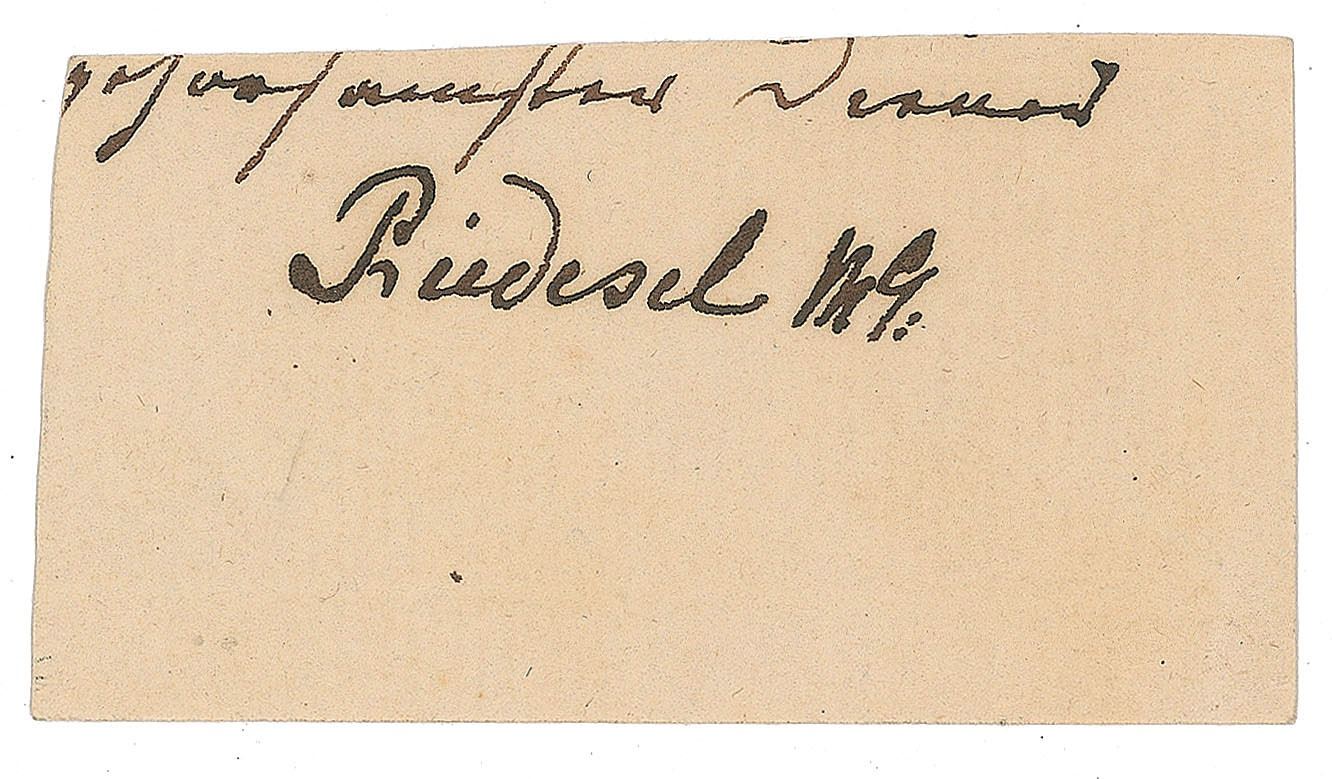 gehorsamster Diener
Riedesel MG: